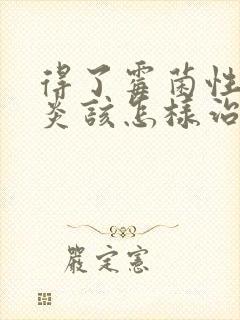 得了霉菌性
炎該怎樣治
嚴定憲